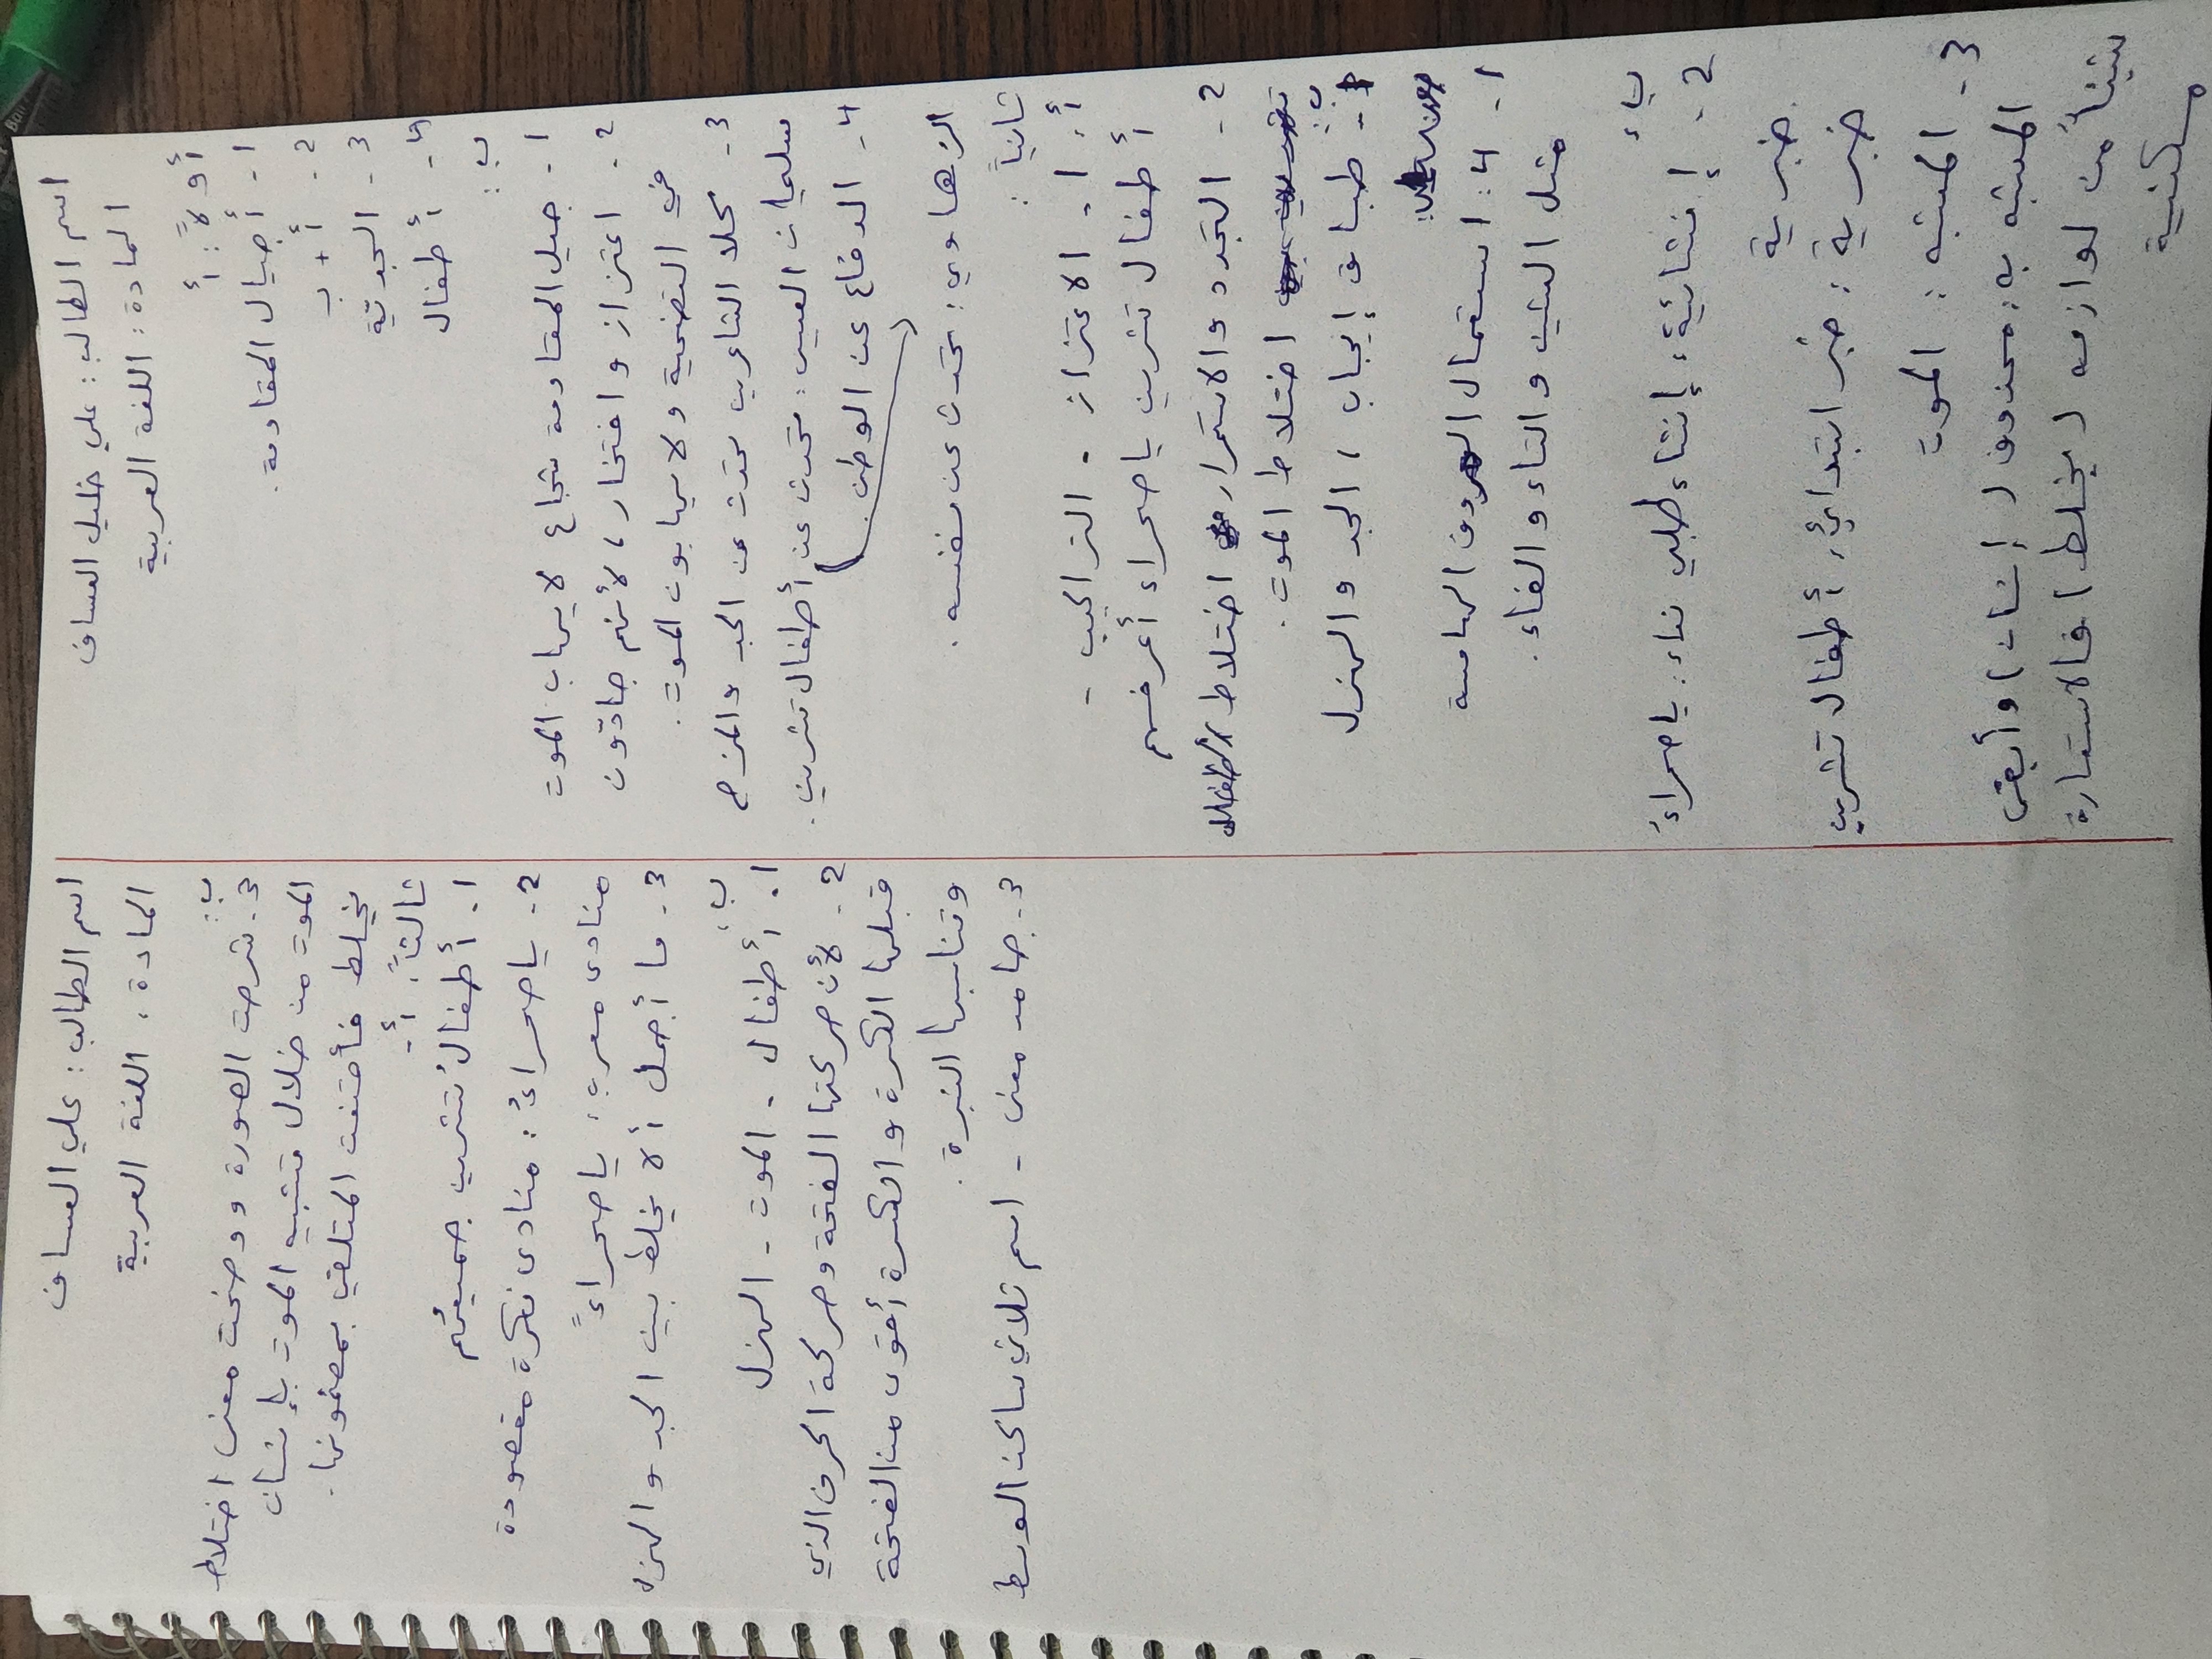 اسم الطالب: علي خليل العساف
المادة: اللغة العربية
أولاً: أ
1- أجيال المقاومة.
2- أ + ب
3- الجديّة
4- أطفال
ب:
1- جيل المقاومة شجاع لا يهاب الموت
2- اعتزاز وافتخار، لأنهم جادّون
في التضحية ولا يهابون الموت.
3- كلا الشاعرين تحدث عن الجد والمزح
سليمان العيسى: تحدث عن أطفال تشرين.
4- الدفاع عن الوطن
الزهاوي: تحدث عن نفسه.
ثانياً:
أ. 1- الاعتزاز - التراكيب -
أطفال تشرين يا صحراء أعرفهم
2- التجدد والاستمرار اختلاط
اختلاط الموت.
ب: طباق إيجاب، الجد والهزل
1- 4: استعمال الحروف الهامسة
مثل الشين والتاء والفاء.
ب:
2- إنشائية، إنشاء طلبي نداء: يا صحراءُ
خبرية
خبرية: خبر ابتدائي، أطفال تشرين
3- المشبه: الموت
المشبه به: محذوف (إنسان) وأبقى
شيئاً من لوازمه (يختلط) فالاستعارة
مكنية
اسم الطالب: علي العساف
المادة: اللغة العربية
ب:
3- شرحت الصورة ووضحت معنى اختلاط
الموت من خلال تشبيه الموت بإنسان
يختلط فأقنعت المتلقي بمضمونها.
ثالثاً: أ-
1- أطفالُ تشرين جميعُهم
2- يا صحراءُ: منادى نكرة مقصودة
منادى معرب: يا صحراءً
3- ما أجمل ألا يخلط بين الجد والهزل
ب:
1- أطفال - الموت - الهزل
2- لأن حركتها الفتحة وحركة الحرف الذي
قبلها الكسرة والكسرة أقوى من الفتحة
وتناسبها النبرة.
3- جامد معنى - اسم ثلاثي ساكن الوسط